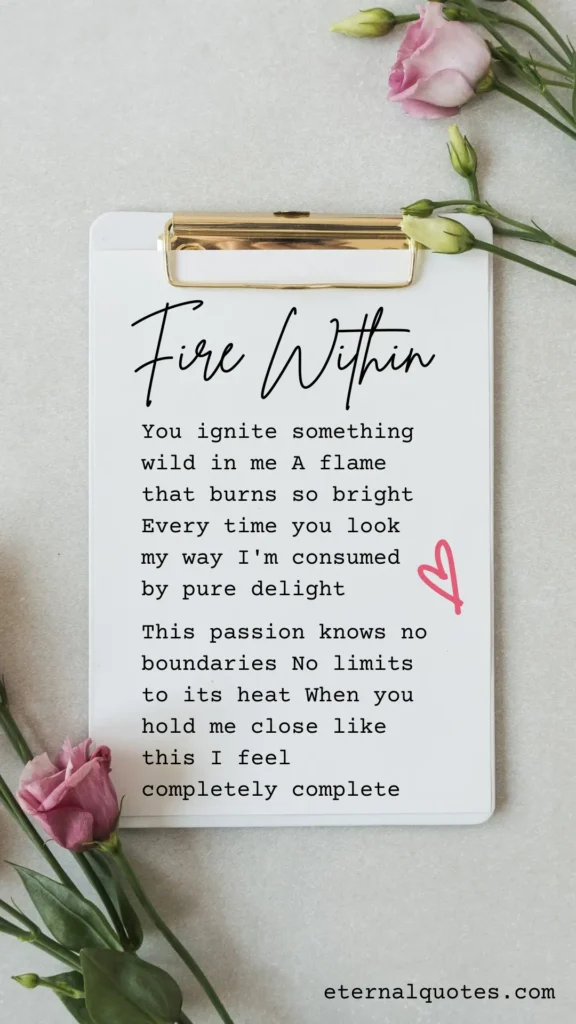 Fire Within
You ignite something
wild in me A flame
that burns so bright
Every time you look
my way I'm consumed
by pure delight
This passion knows no
boundaries No limits
to its heat When you
hold me close like
this I feel
completely complete
eternalquotes.com